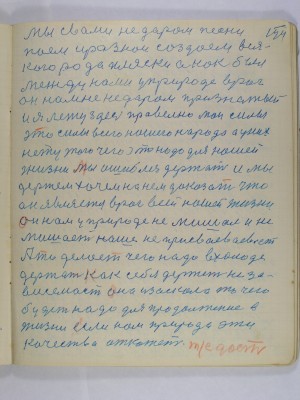 154
мы свами не даром песни
поем и разной создаем вся-
кого рода пляски а как был
между нами у природе враг
он нам не даром признатый
и я лечу здесь правельно мои силы
это силы всего нашего народа а у них
нету того чего это надо для нашей
жизни мы ошиблись держат и мы
держем хочем на нем доказать что
он является враг всей нашей жизни
он нам у природе не мишал и не
мишает наше не присваевает
А то делает чего надо в холоде
держат как себя держет неза-
висемаст она изказала то чего
будет надо для продолжение в
жизни если нам природа эти
качества откажет